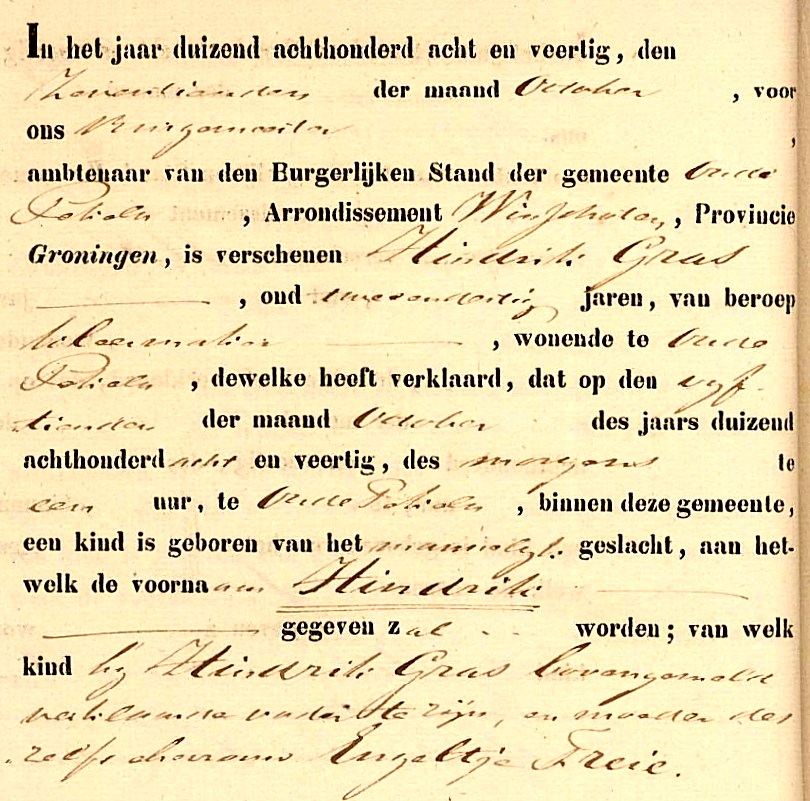 In het jaar duizend achthonderd acht en veertig, den
Zeventienden der maand October , voor
ons Burgemeester ,
ambtenaar van den Burgerlijken Stand der gemeente Oude
Pekela , Arrondissement Winschoten, Provincie
Groningen, is verschenen Hindrik Gras
, oud twee en dertig jaren, van beroep
, wonende te Oude
Pekela , dewelke heeft verklaard, dat op den vyf-
tienden der maand October des jaars duizend
achthonderd acht en veertig, des morgens te
een uur, te Oude Pekela , binnen deze gemeente,
een kind is geboren van het mannelyk geslacht, aan het-
welk de voornaam Hindrik
gegeven zal worden; van welk
kind hy Hindrik Gras bovengemeld
verklaarde vader te zijn, en moeder des
zelfs chevrouw Engeltje Freie.